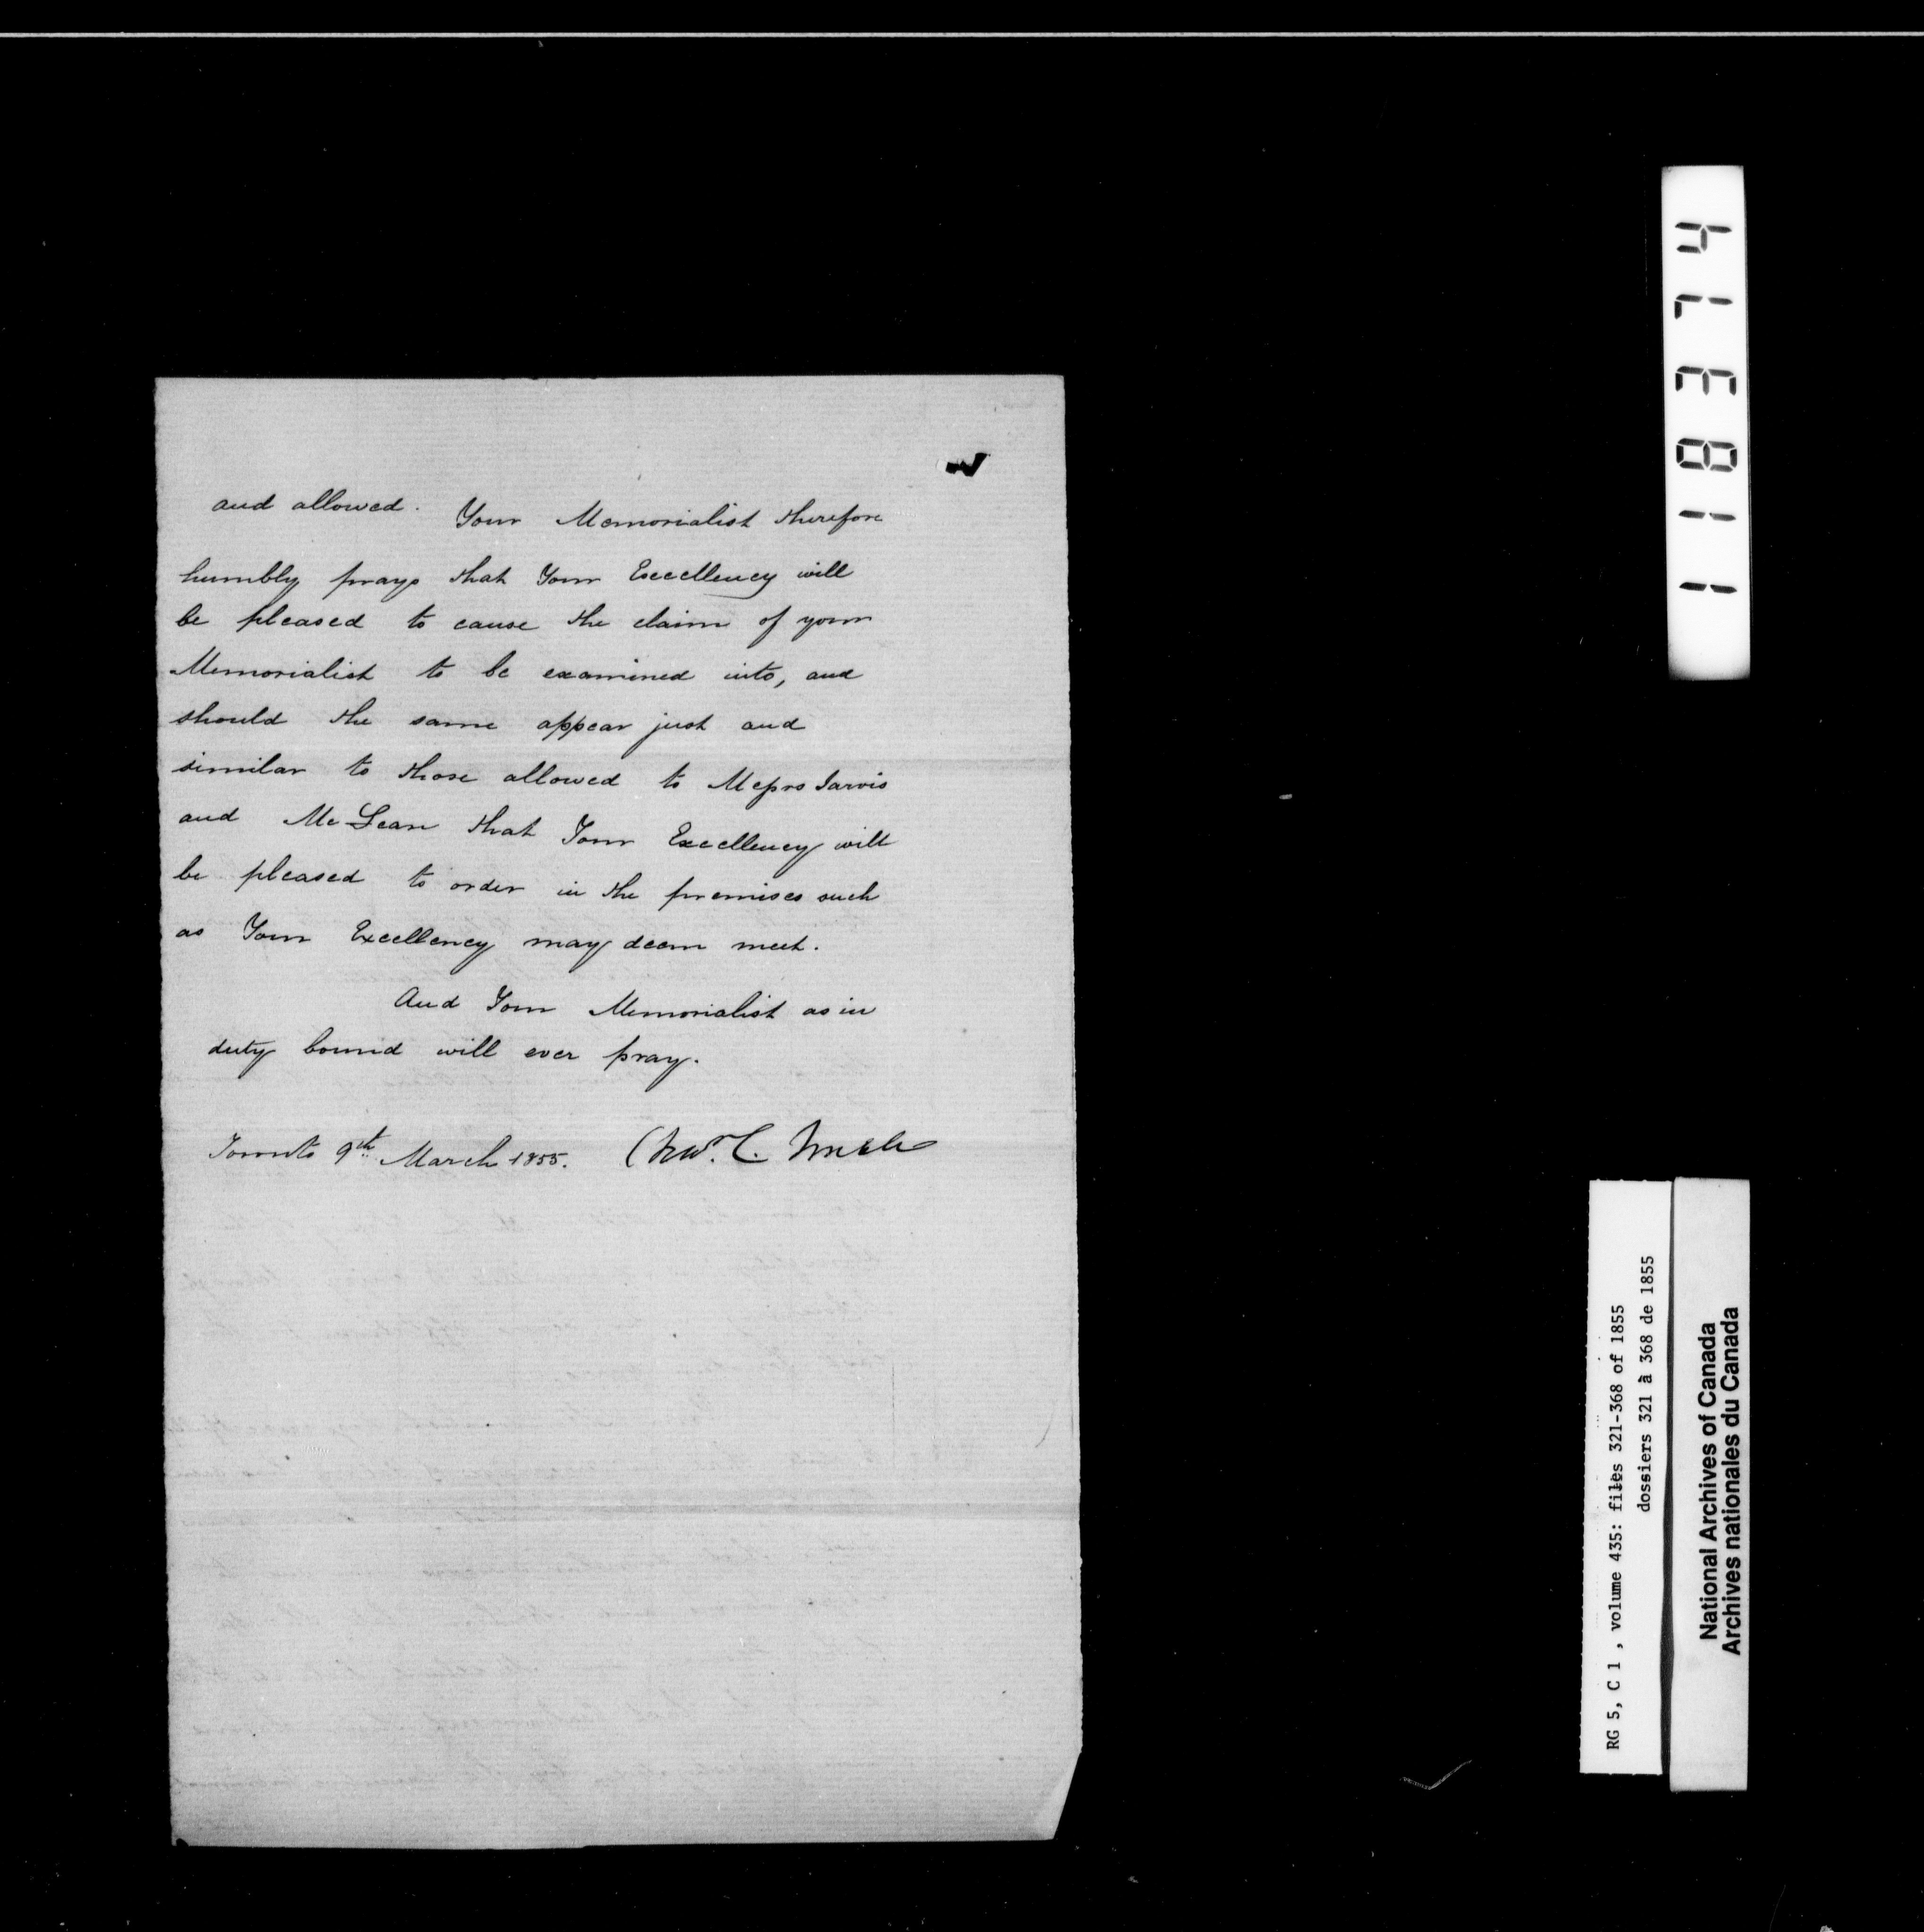 and allowed. Your Memorialist therefore
humbly prays that Your Excellency will
be pleased to cause the claim of your
Memorialist to be examined into, and
should the same appear just and
similar to those allowed to Messrs Jarvis
and McLean that Your Excellency will
be pleased to order in the premises such
as Your Excellency may deem meet.
And Your Memorialist as in
duty bound will ever pray.
Toronto 9th March 1855. C. Small
118374
RG 5, C 1 , volume 435: files 321-368 of 1855
dossiers 321 à 368 de 1855
National Archives of Canada
Archives nationales du Canada